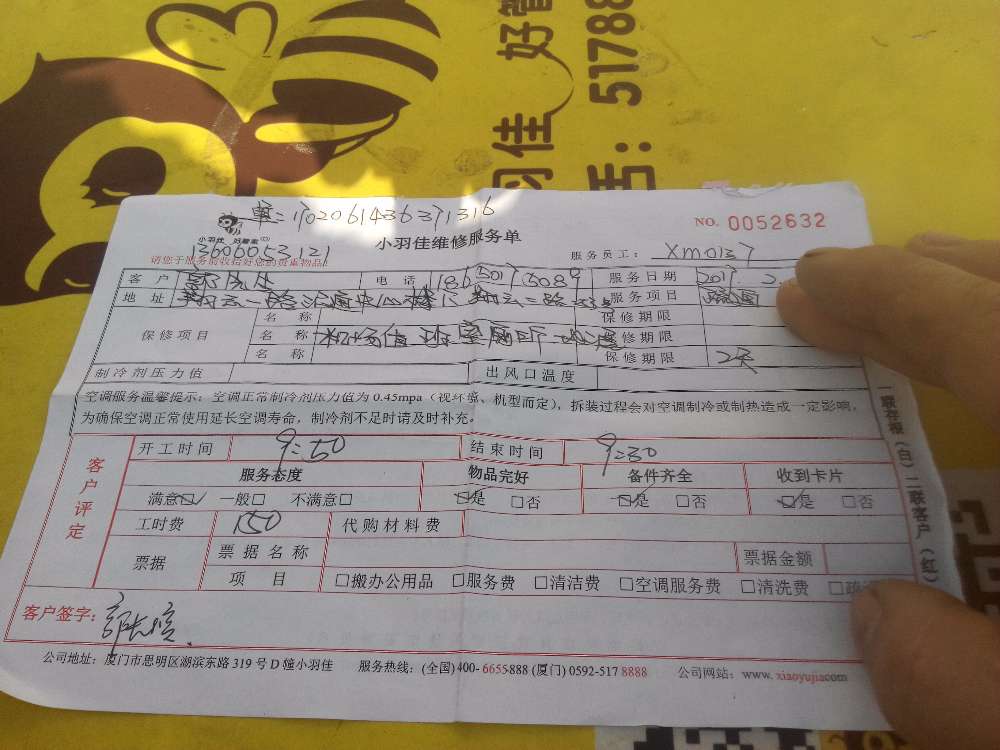 好管
羽佳
话: 51788
单: 1702061436371316
小羽佳 好管家
NO. 0052632
13606053121
小羽佳维修服务单
服务员工: XM0137
请您于服务前收拾好您的贵重物品
客户 郭先生 电话 18650175089 服务日期 2017 2.
地址 服务项目
保修项目
名称 保修期限
名称 机场值班室厕所 保修期限
名称 保修期限 2天
制冷剂压力值 出风口温度
空调服务温馨提示: 空调正常制冷剂压力值为 0.45mpa (视环境、机型而定), 拆装过程会对空调制冷或制热造成一定影响,
为确保空调正常使用延长空调寿命, 制冷剂不足时请及时补充。
客户评定
开工时间 9:50 结束时间 9:30
服务态度 物品完好 备件齐全 收到卡片
满意☑ 一般□ 不满意□ ☑是 □否 ☑是 □否 ☑是 □否
工时费 150 代购材料费
票据 票据名称 票据金额
项目 □搬办公用品 □服务费 □清洁费 □空调服务费 □清洗费 □疏
客户签字:
公司地址: 厦门市思明区湖滨东路 319 号 D 幢小羽佳 服务热线: (全国) 400-6655888 (厦门) 0592-517 8888 公司网站: www.xiaoyujia.com
一联存根 (白) 二联客户 (红)